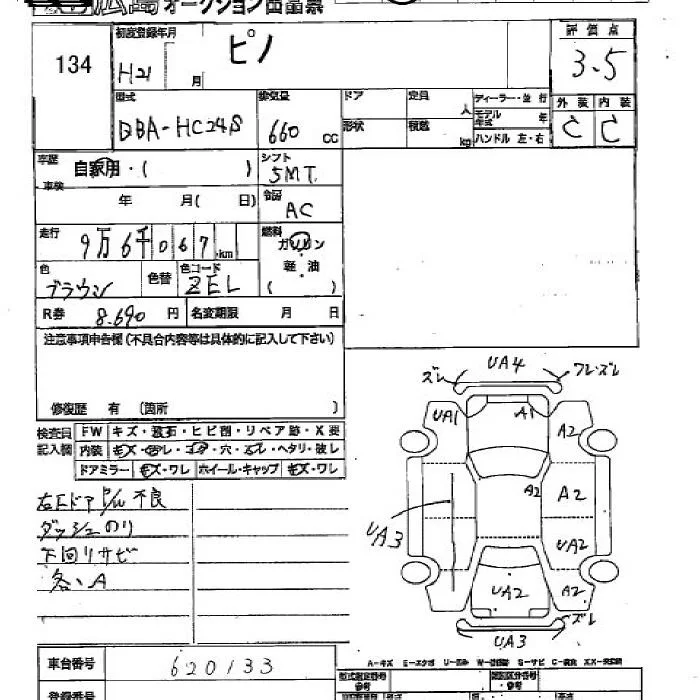 広島オークション出品票
134
初度登録年月 ピノ
H21 月
評価点
3.5
外装 内装
C C
型式 排気量 ドア 定員 ディーラー・並行
DBA-HC24S 660 CC 人 モデル年式 年
形状 積載 kg ハンドル 左・右
車歴 自家用・( )
シフト
5MT
車検 年 月( 日)
冷房
AC
走行 9万6千067km
燃料
ガソリン
軽油
( )
色 ブラウン 色替 色コード ZEL
R券 8.690 円 名変期限 月 日
注意事項申告欄(不具合内容等は具体的に記入して下さい)
修復歴 有 (箇所 )
検査員記入欄 FW キズ・飛石・ヒビ割・リペア跡・X要
内装 キズ・汚レ・コゲ・穴・スレ・ヘタリ・破レ
ドアミラー キズ・ワレ ホイール・キャップ キズ・ワレ
不良
ダッシュのり
下回リサビ
各、A
ズレ UA4 ワレ・ズレ
UA1 A1 A2
A2 A2
UA3 UA2
UA2 A2
ズレ
UA3
A-キズ E-エクボ U-凹み W-補修跡 S-サビ C-腐食 XX-交換済
車台番号 620133
型式指定番号 類別区分番号
参考 参考
登録番号